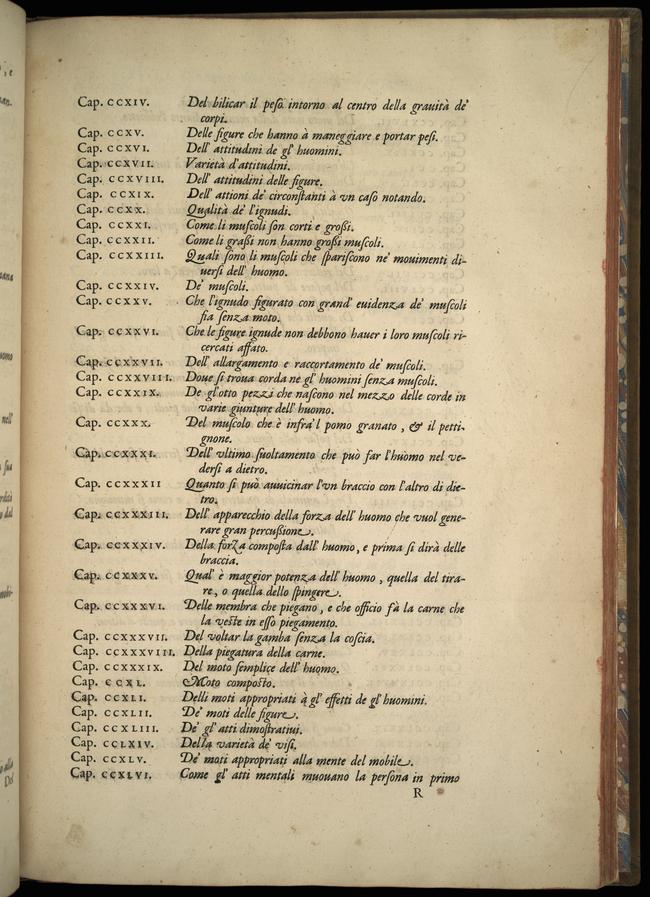 Cap. CCXIV. Del bilicar il peſo intorno al centro della grauità de'
corpi.
Cap. CCXV. Delle figure che hanno à maneggiare e portar peſi.
Cap. CCXVI. Dell' attitudini de gl' huomini.
Cap. CCXVII. Varietà d'attitudini.
Cap. CCXVIII. Dell' attitudini delle figure.
Cap. CCXIX. Dell' attioni de' circonſtanti à vn caſo notando.
Cap. CCXX. Qualità de' l'ignudi.
Cap. CCXXI. Come li muſcoli ſon corti e groſſi.
Cap. CCXXII. Come li graſſi non hanno groſſi muſcoli.
Cap. CCXXIII. Quali ſono li muſcoli che ſpariſcono ne' mouimenti di-
uerſi dell' huomo.
Cap. CCXXIV. De' muſcoli.
Cap. CCXXV. Che l'ignudo figurato con grand' euidenza de' muſcoli
ſia ſenza moto.
Cap. CCXXVI. Che le figure ignude non debbono hauer i loro muſcoli ri-
cercati affato.
Cap. CCXXVII. Dell' allargamento e raccortamento de' muſcoli.
Cap. CCXXVIII. Doue ſi troua corda ne gl' huomini ſenza muſcoli.
Cap. CCXXIX. De gl'otto pezzi che naſcono nel mezzo delle corde in
varie giunture dell' huomo.
Cap. CCXXX. Del muſcolo che è infra'l pomo granato, & il petti-
gnone.
Cap. CCXXXI. Dell' vltimo ſuoltamento che può far l'huomo nel ve-
derſi a dietro.
Cap. CCXXXII Quanto ſi può auuicinar l'vn braccio con l'altro di die-
tro.
Cap. CCXXXIII. Dell' apparecchio della forza dell' huomo che vuol gene-
rare gran percuſſione.
Cap. CCXXXIV. Della forza compoſta dall' huomo, e prima ſi dirà delle
braccia.
Cap. CCXXXV. Qual' è maggior potenza dell' huomo, quella del tira-
re, o quella dello ſpingere.
Cap. CCXXXVI. Delle membra che piegano, e che officio fà la carne che
la veſte in eſſo piegamento.
Cap. CCXXXVII. Del voltar la gamba ſenza la coſcia.
Cap. CCXXXVIII. Della piegatura della carne.
Cap. CCXXXIX. Del moto ſemplice dell' huomo.
Cap. CCXL. Moto compoſto.
Cap. CCXLI. Delli moti appropriati à gl' effetti de gl' huomini.
Cap. CCXLII. De' moti delle figure.
Cap. CCXLIII. De' gl' atti dimoſtratiui.
Cap. CCLXIV. Della varietà de' viſi.
Cap. CCXLV. De' moti appropriati alla mente del mobile.
Cap. CCXLVI. Come gl' atti mentali muouano la perſona in primo
R